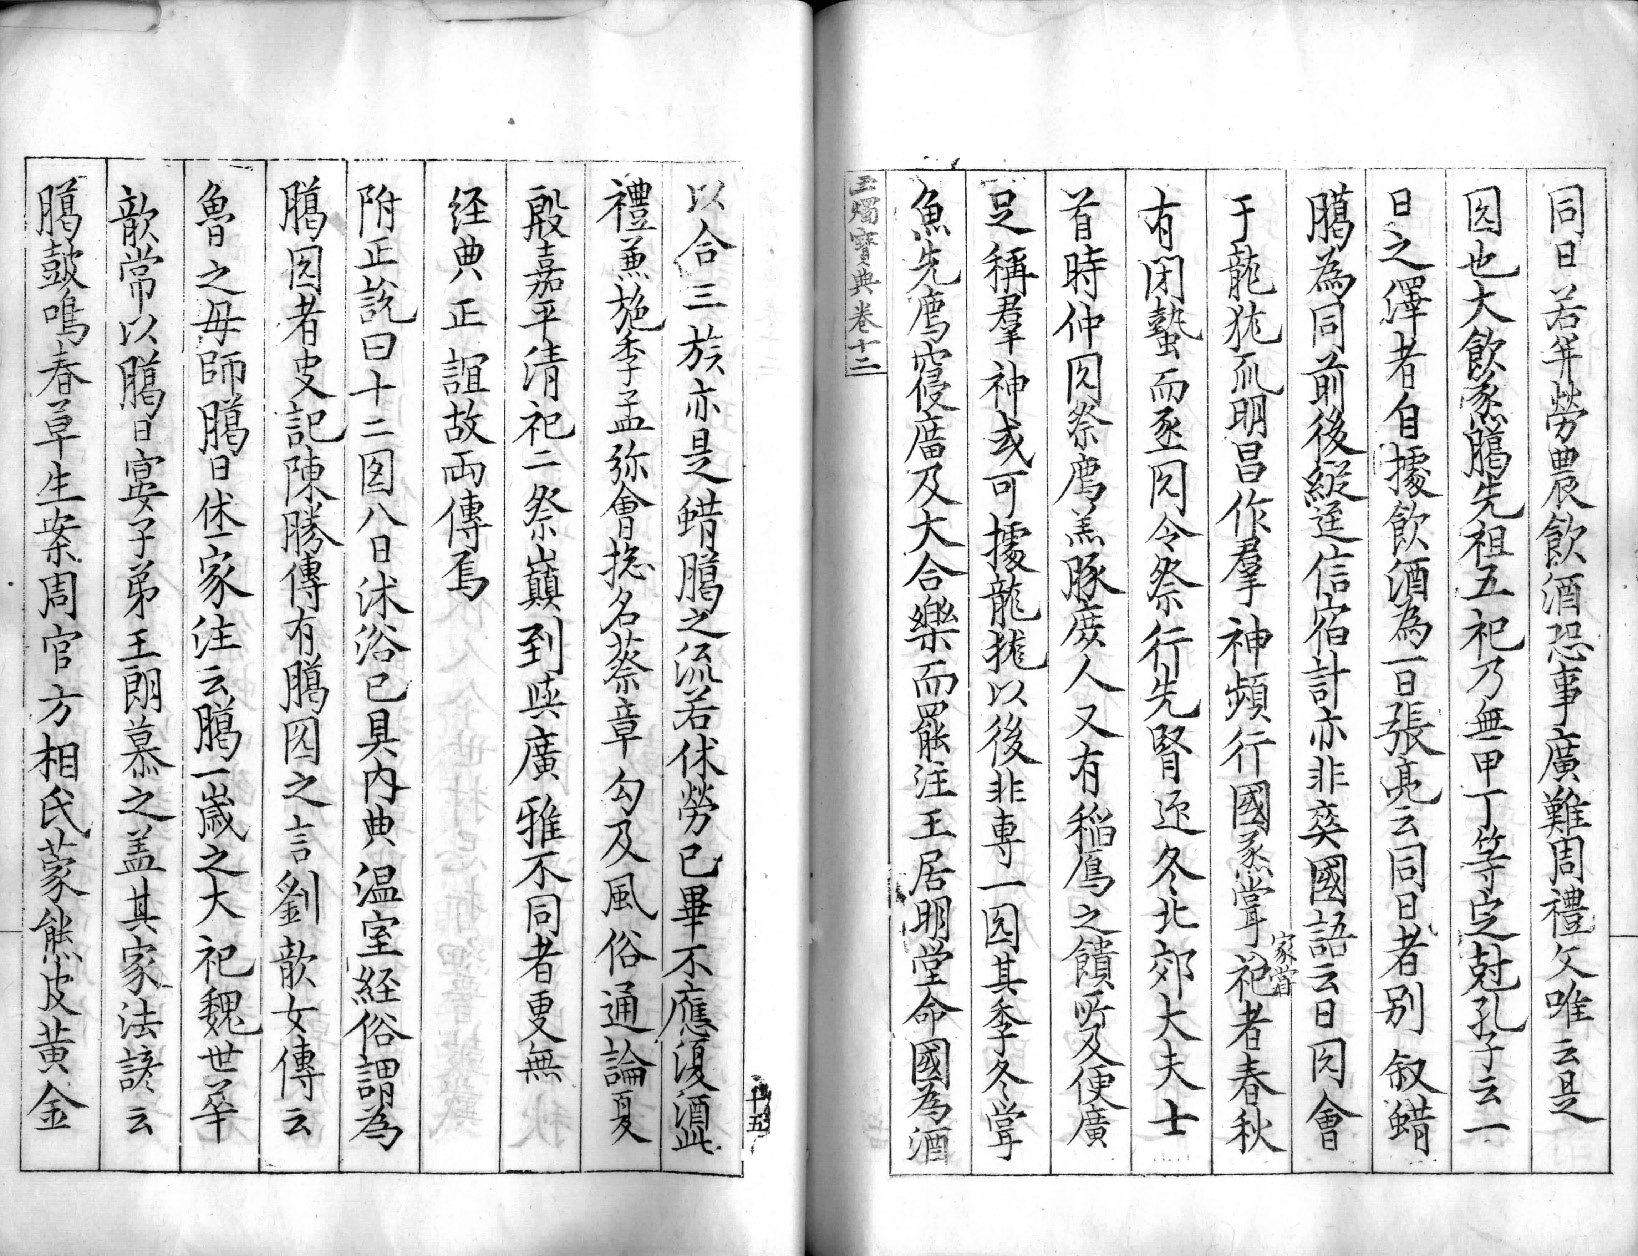 同日若并勞農飲酒恐事廣難周禮文唯云是
囙也大飲烝臈先祖五祀乃無甲丁等定尅孔子云一
日之澤者自據飲酒為一日張亮云同日者別叙蜡
臈為同前後縱逕信宿計亦非爽國語云日囙會
于龍狵𤓰明昌作羣神頻行國烝甞祀者春秋
家甞
有閉蟄而烝囙令祭行先腎迊冬北郊大夫士
首時仲囙祭鴈羔豚庶人又有稲鴈之饋所及便廣
足稱羣神或可據龍狵以後非専一囙其季冬甞
魚先鴈寑廣及大合樂而罷注王居明堂命國為酒
玉燭寶典卷十二
以合三族亦是蜡臈之流若休勞已畢不應復酒
禮兼施季孟弥會揔名蔡章勾及風俗通論夏
殷嘉平清祀二祭巔到與廣雅不同者更無
経典正誼故両傳焉
附正説曰十二囙八日沐浴已具内典温室経俗謂為
臈囙者史記陳勝傳有臈囙之言劉歆女傳云
魯之母師臈日休家注云臈一歳之大祀魏世華
歆常以臈日宴子弟王朗慕之盖其家法諺云
臈鼓鳴春草生案周官方相氏蒙熊皮黄金
十五